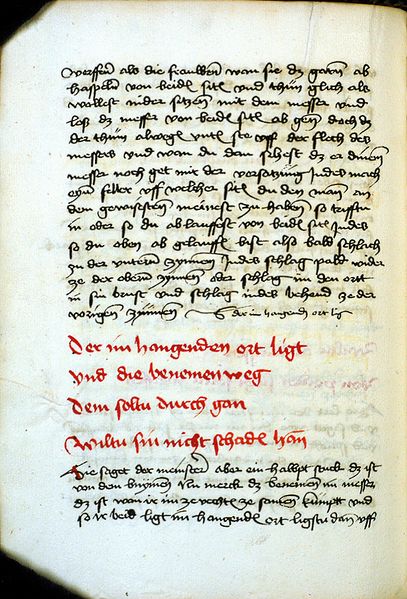 werffen als die frauwen wan sie dz garn ab
haspeln von beiden siten und thun glich als
wollest nider sitzen mit dem messer und
loß dz messer von beiden siten ab gen doch dz
der thun alwegen unten ste uff der flech des
messers und wan du dan sihest dz er dinem
messer noch get mit der versatzung Indes mach
eyn feler uff welcher siten du den man an
dem gewissten meinest zu haben so triffstu
in oder so du ablauffest von beiden siten Indes
so du oben ab gelauffen bist also bald schlach
zu der untern zynnen Indes schlag pald wider
ze der obern zynnen oder schlag im den ortt
in sin brust und schlag indes behend ze der
vorigen zynnen der im hangenden ort lig
Der im hangenden ort ligt
und die benemen weg
Dem soltu durch gan
Wiltu sin nicht schaden han
Hie saget der meinster aber ein halbpt stuck dz ist
von dem Nu merck dz benemen im messer
dz ist wan ir im zevechten ze samen kumptt und
so ir beid ligt im hangenden ort ligstu dan uff